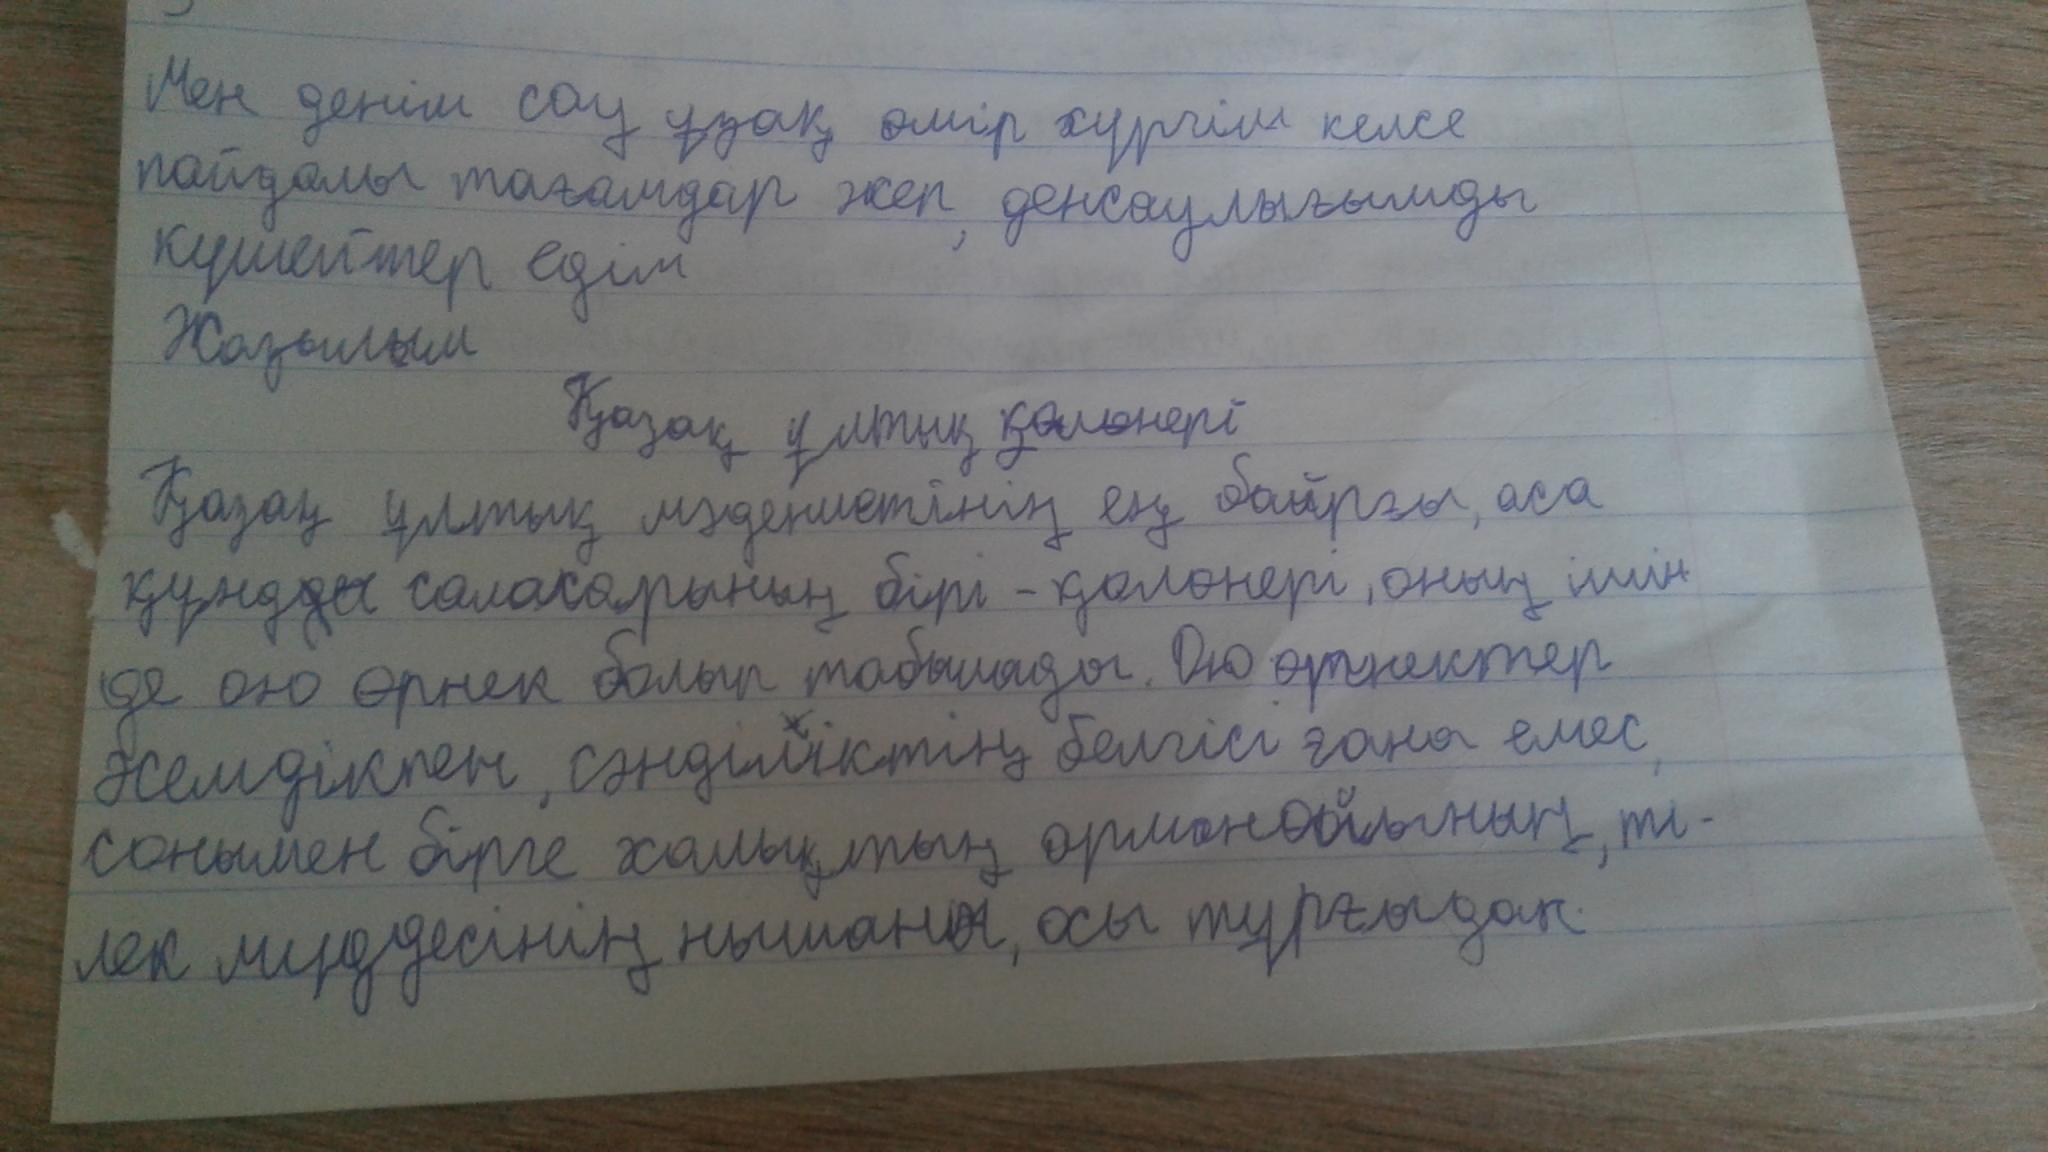 Мен денім сау ұзақ өмір хүргім келсе
пайдалы тағамдар жеп, денсаулығымды
күшейтер едім
Жазылым
Қазақ ұлттық қолөнері
Қазақ ұлттық мәдениетінің ең байрғы, аса
құнды салаларының бірі - қолөнері, оның ішін
де ою өрнек болып табылады. Ою өрнектер
жемдіктен, сәнділіктің белгісі ғана емес,
сонымен бірге халықтың арманойының, ті-
лек мүддесінің нышаны, осы тұрғыдан.